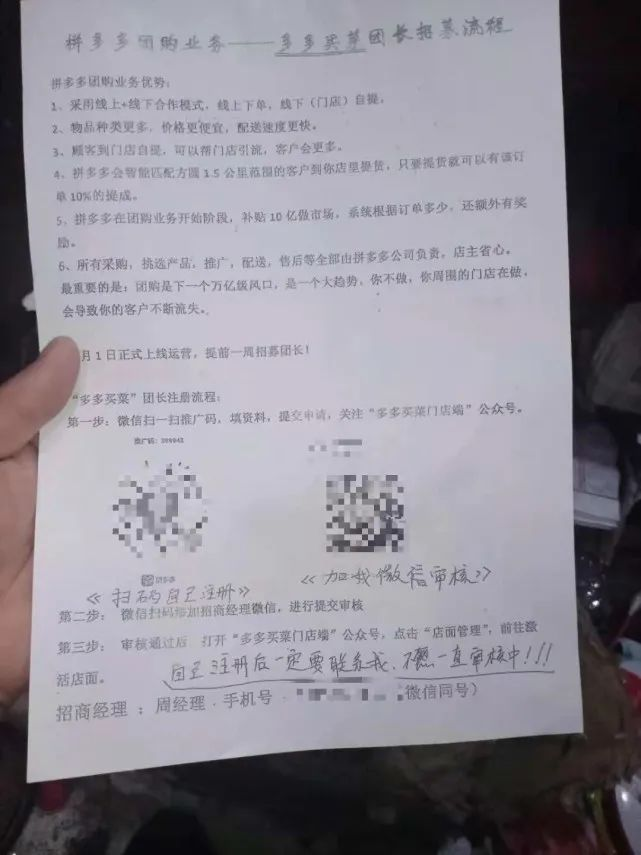 拼多多团购业务——多多买菜团长招募流程
拼多多团购业务优势：
1、采用线上+线下合作模式，线上下单，线下（门店）自提。
2、物品种类更多，价格更便宜，配送速度更快。
3、顾客到门店自提，可以帮门店引流，客户会更多。
4、拼多多会智能匹配方圆 1.5 公里范围的客户到你店里提货，只要提货就可以有该订
单 10%的提成。
5、拼多多在团购业务开始阶段，补贴 10 亿做市场，系统根据订单多少，还额外有奖
励。
6、所有采购，挑选产品，推广，配送，售后等全部由拼多多公司负责，店主省心。
最重要的是：团购是下一个万亿级风口，是一个大趋势，你不做，你周围的门店在做，
会导致你的客户不断流失。
月 1 日正式上线运营，提前一周招募团长！
“多多买菜”团长注册流程：
第一步：微信扫一扫推广码，填资料，提交申请，关注“多多买菜门店端”公众号。
推广码：
拼多多
《扫码自己注册》
《加我微信审核》
第二步：微信扫码添加招商经理微信，进行提交审核
第三步：审核通过后，打开“多多买菜门店端”公众号，点击“店面管理”，前往激
活店面。
自己注册后一定要联系我，不然一直审核中！！！
招商经理：周经理．手机号．微信同号）